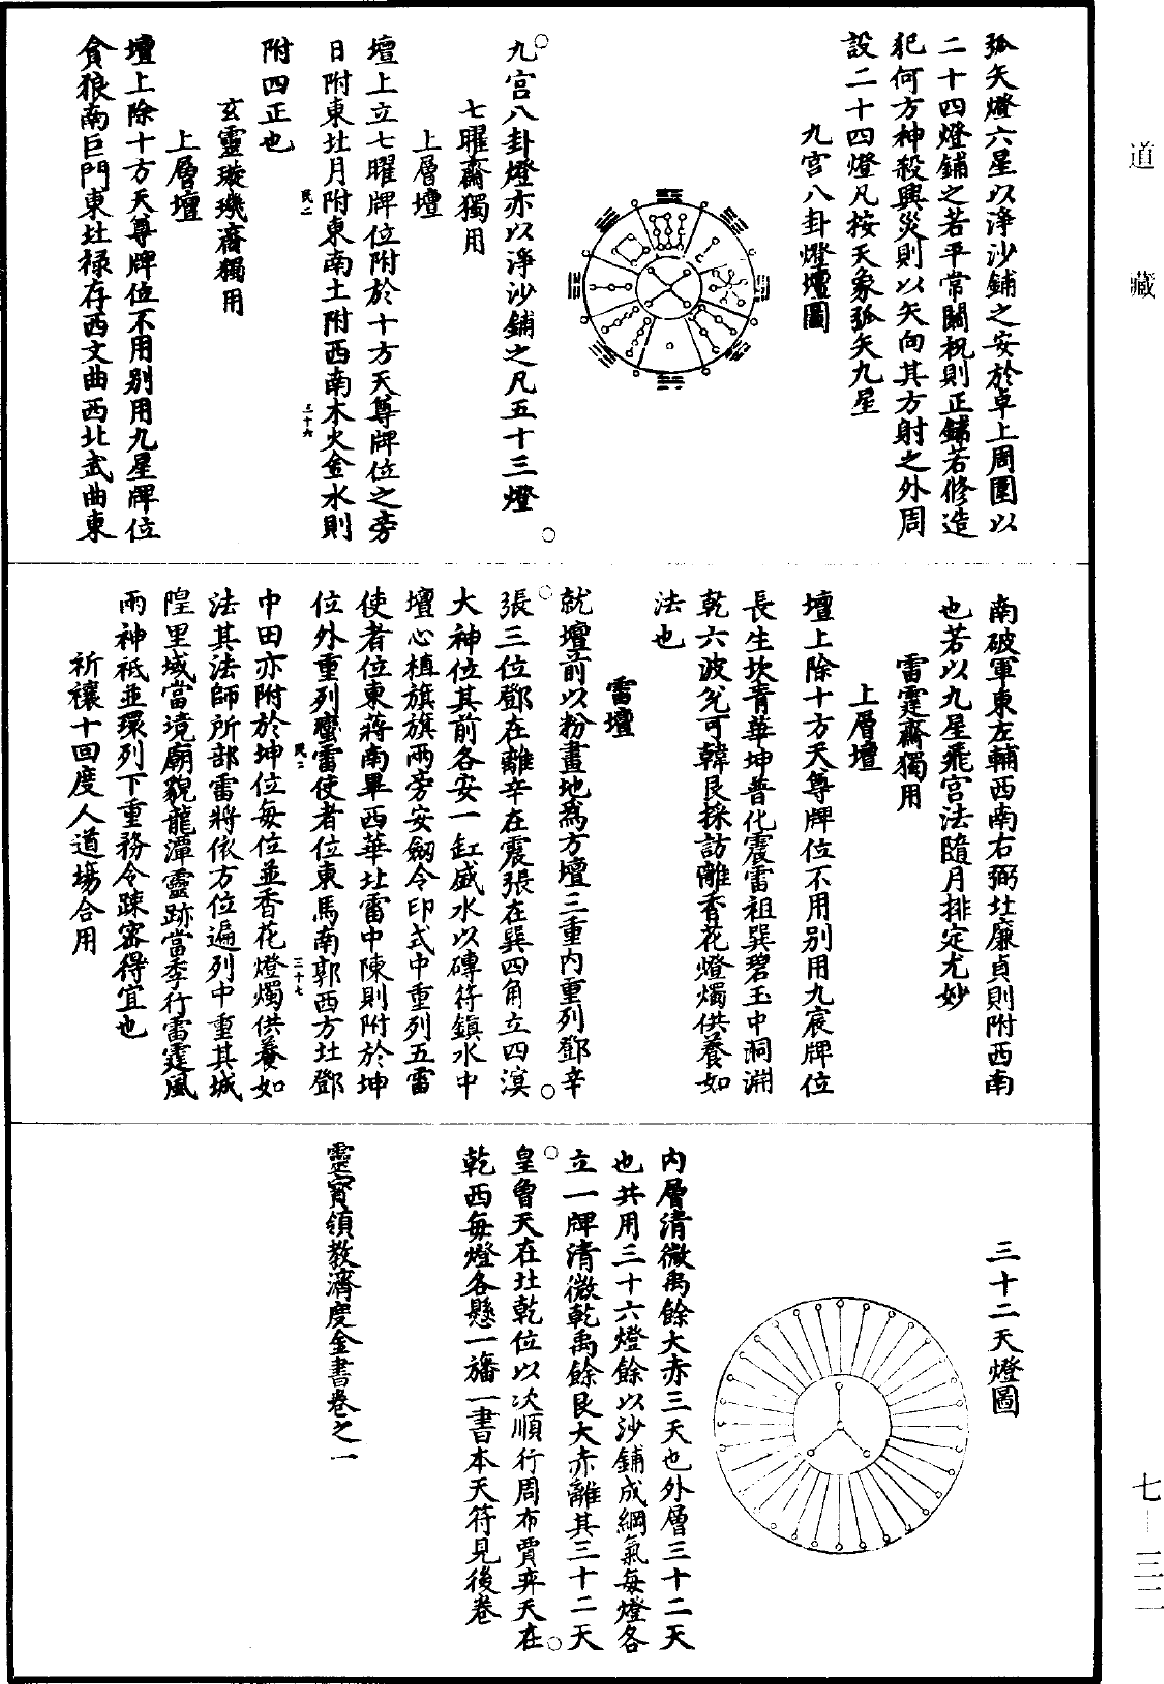 道藏
七—三二
孤矢燈六星以淨沙鋪之安於卓上周圍以
二十四燈鋪之若平常關祝則正鋪若修造
犯何方神殺興災則以矢向其方射之外周
設二十四燈凡按天象孤矢九星
九宮八卦燈壇圖
九宮八卦燈亦以淨沙鋪之凡五十三燈
七曜齋獨用
上層壇
壇上立七曜牌位附於十方天尊牌位之旁
日附東北月附東南土附西南木火金水則
民二
三十六
附四正也
玄靈璇璣齋獨用
上層壇
壇上除十方天尊牌位不用別用九星牌位
貪狼南巨門東北祿存西文曲西北武曲東
南破軍東左輔西南右弼北廉貞則附西南
也若以九星飛宮法隨月排定尤妙
雷霆齋獨用
上層壇
壇上除十方天尊牌位不用別用九宸牌位
長生坎青華坤普化震雷祖巽碧玉中洞淵
乾六波兌可韓艮採訪離香花燈燭供養如
法也
雷壇
就壇前以粉畫地為方壇三重內重列鄧辛
張三位鄧在離辛在震張在巽四角立四溟
大神位其前各安一缸盛水以磚符鎮水中
壇心植旗旗兩旁安劒令印式中重列五雷
使者位東蔣南畢西華北雷中陳則附於坤
位外重列蠻雷使者位東馬南郭西方北鄧
民二
三十七
中田亦附於坤位每位並香花燈燭供養如
法其法師所部雷將依方位遍列中重其城
隍里域當境廟貌龍潭靈跡當季行雷霆風
雨神祇並環列下重務令疎密得宜也
祈禳十回度人道場合用
三十二天燈圖
內層清微禹餘大赤三天也外層三十二天
也共用三十六燈餘以沙鋪成綱氣每燈各
立一牌清微乾禹餘艮大赤離其三十二天
皇曾天在北乾位以次順行周布賈奕天在
乾西每燈各懸一旛一書本天符見後卷
靈寶領教濟度金書卷之一